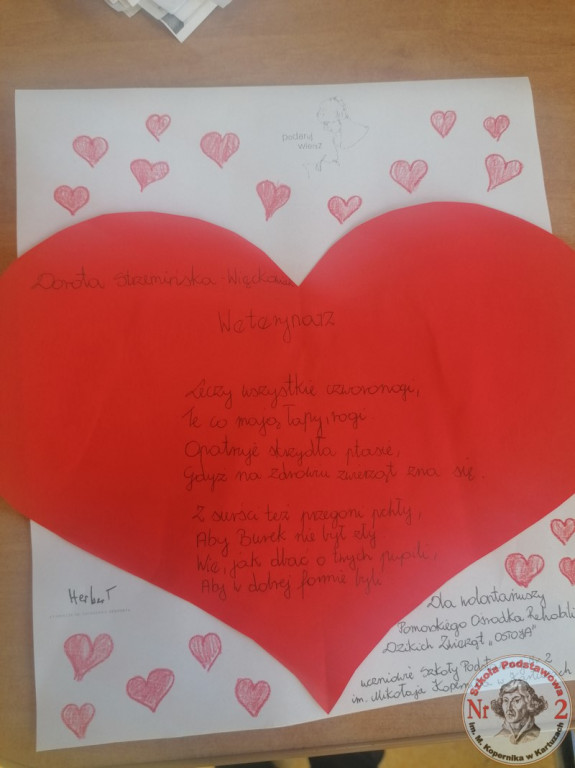 podéruj
wiersz
Dorota Strzemińska Więckowiak
Weterynarz
Leczy wszystkie czworonogi,
Te co mają łapy, rogi
Opatruje skrzydła ptasie,
Gdyż na zdrowiu zwierząt zna się.
Z sierści też przegoni pchły,
Aby Burek nie był zły
Wie, jak dbać o twych pupili,
Aby w dobrej formie byli
Herbert
Dla wolontariuszy
Pomorskiego Ośrodka Rehabilitacji
Dzikich Zwierząt "OSTOJA"
uczniowie Szkoły Podstawowej 2
im. Mikołaja Kopernika w
Szkoła Podstawowa
Nr 2
im. M. Kopernika w Kartuzach